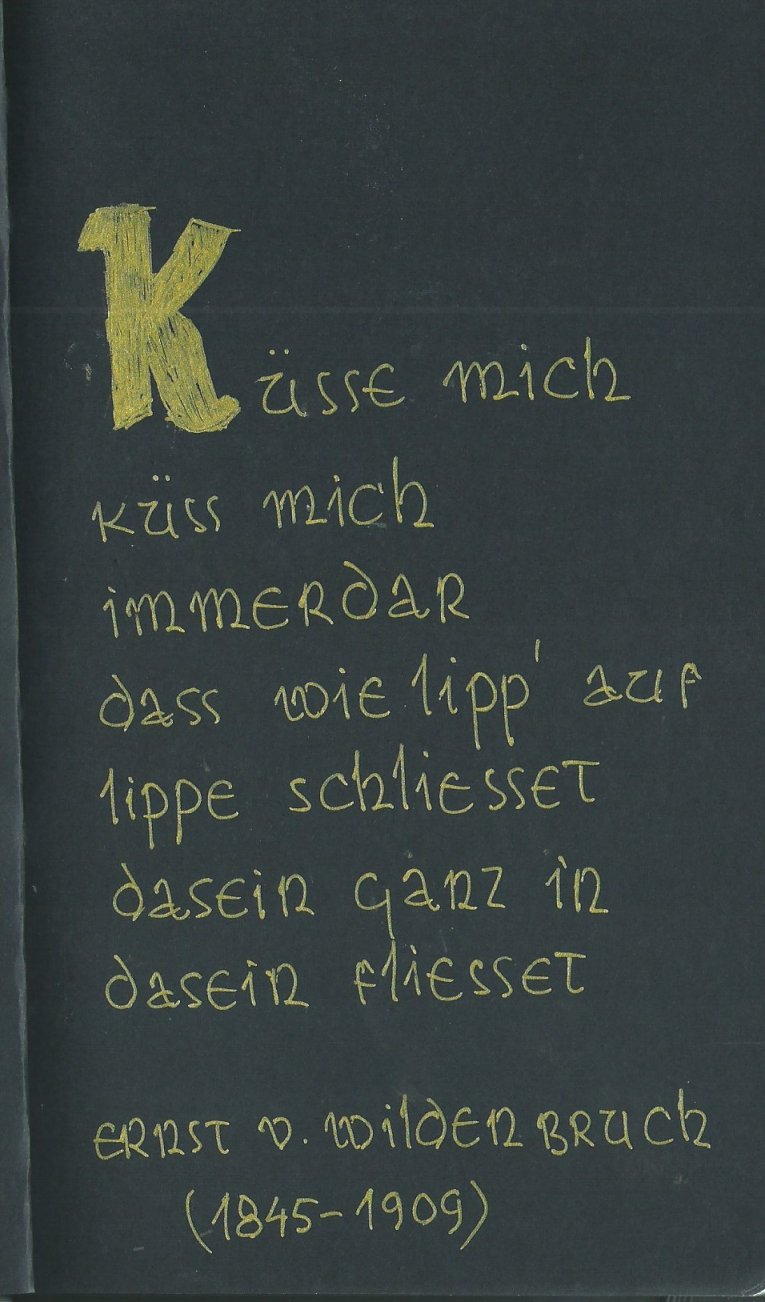 Küsse mich
küss mich
immerdar
dass wie lipp' auf
lippe schliesset
dasein ganz in
dasein fliesset
Ernst v. Wildenbruch
(1845-1909)